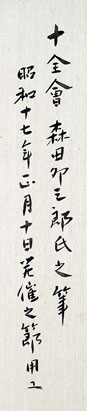 十全會 森田卯三郎氏之筆
昭和十七年正月十日 催之節 用工